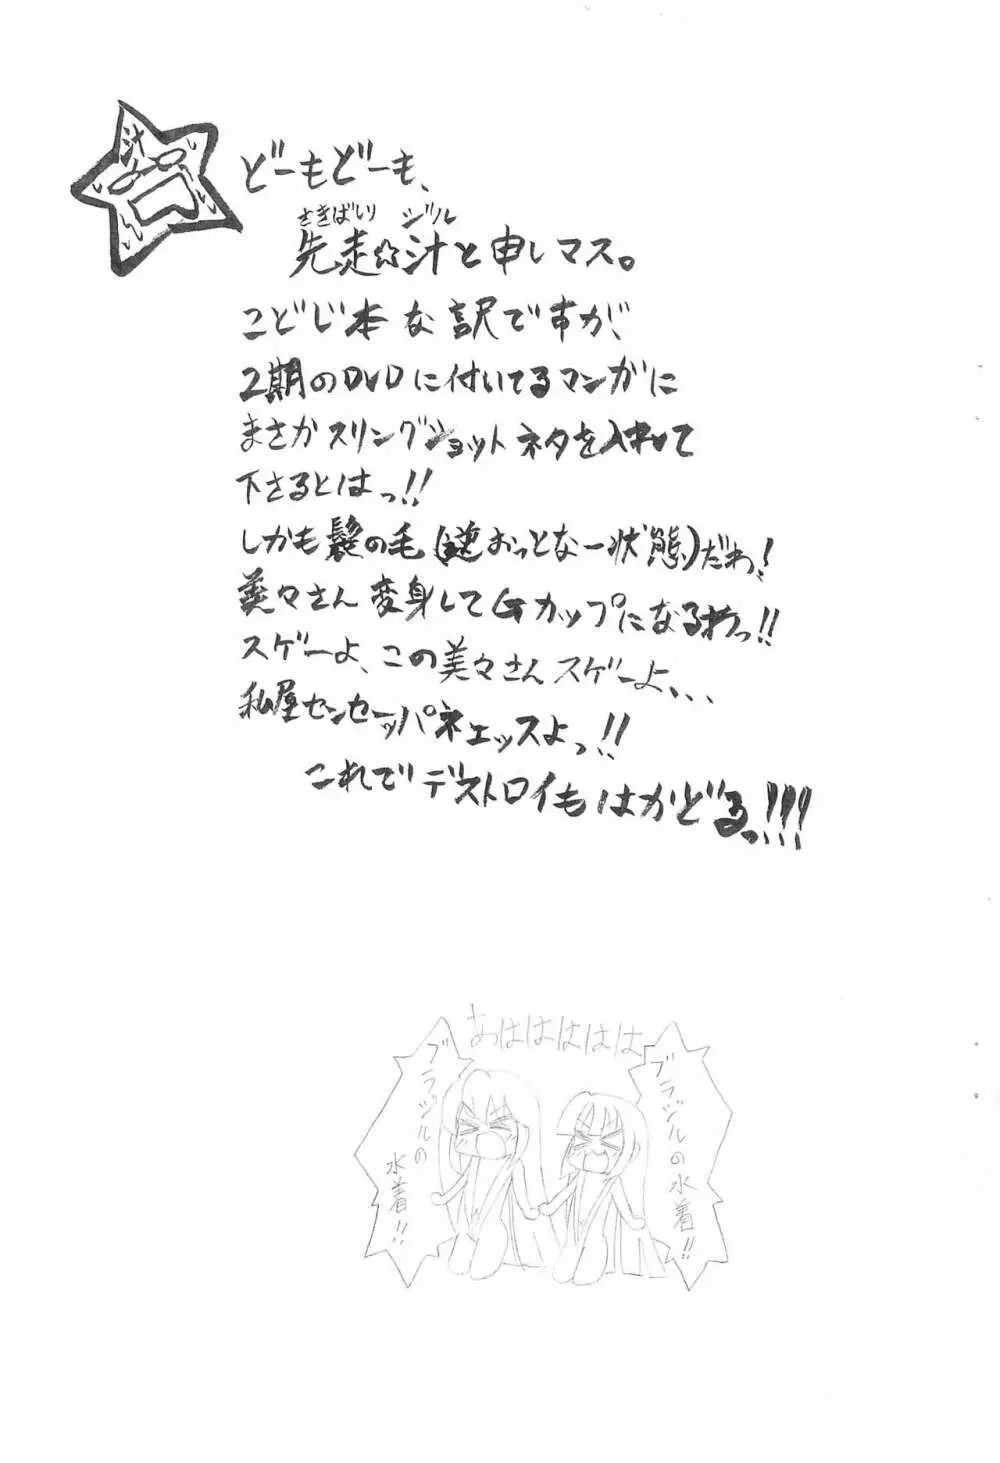 汁
どーもどーも、
さきばしり ジル
先走☆汁と申しマス。
こどじ本な訳ですが、
2期のDVDに付いてるマンガに
まさかスリングショットネタを入れて
下さるとはっ!!
しかも髪の毛(逆おっとなー状態)だわ!
美々さん変身してGカップになるわっ!!
スゲーよ、この美々さんスゲーよ、、、
私屋センセーッパネェッスよっ!!
これでデストロイもはかどるっ!!!
あはははははは
ブラジルの
水着!!
ブラジルの
水着!!